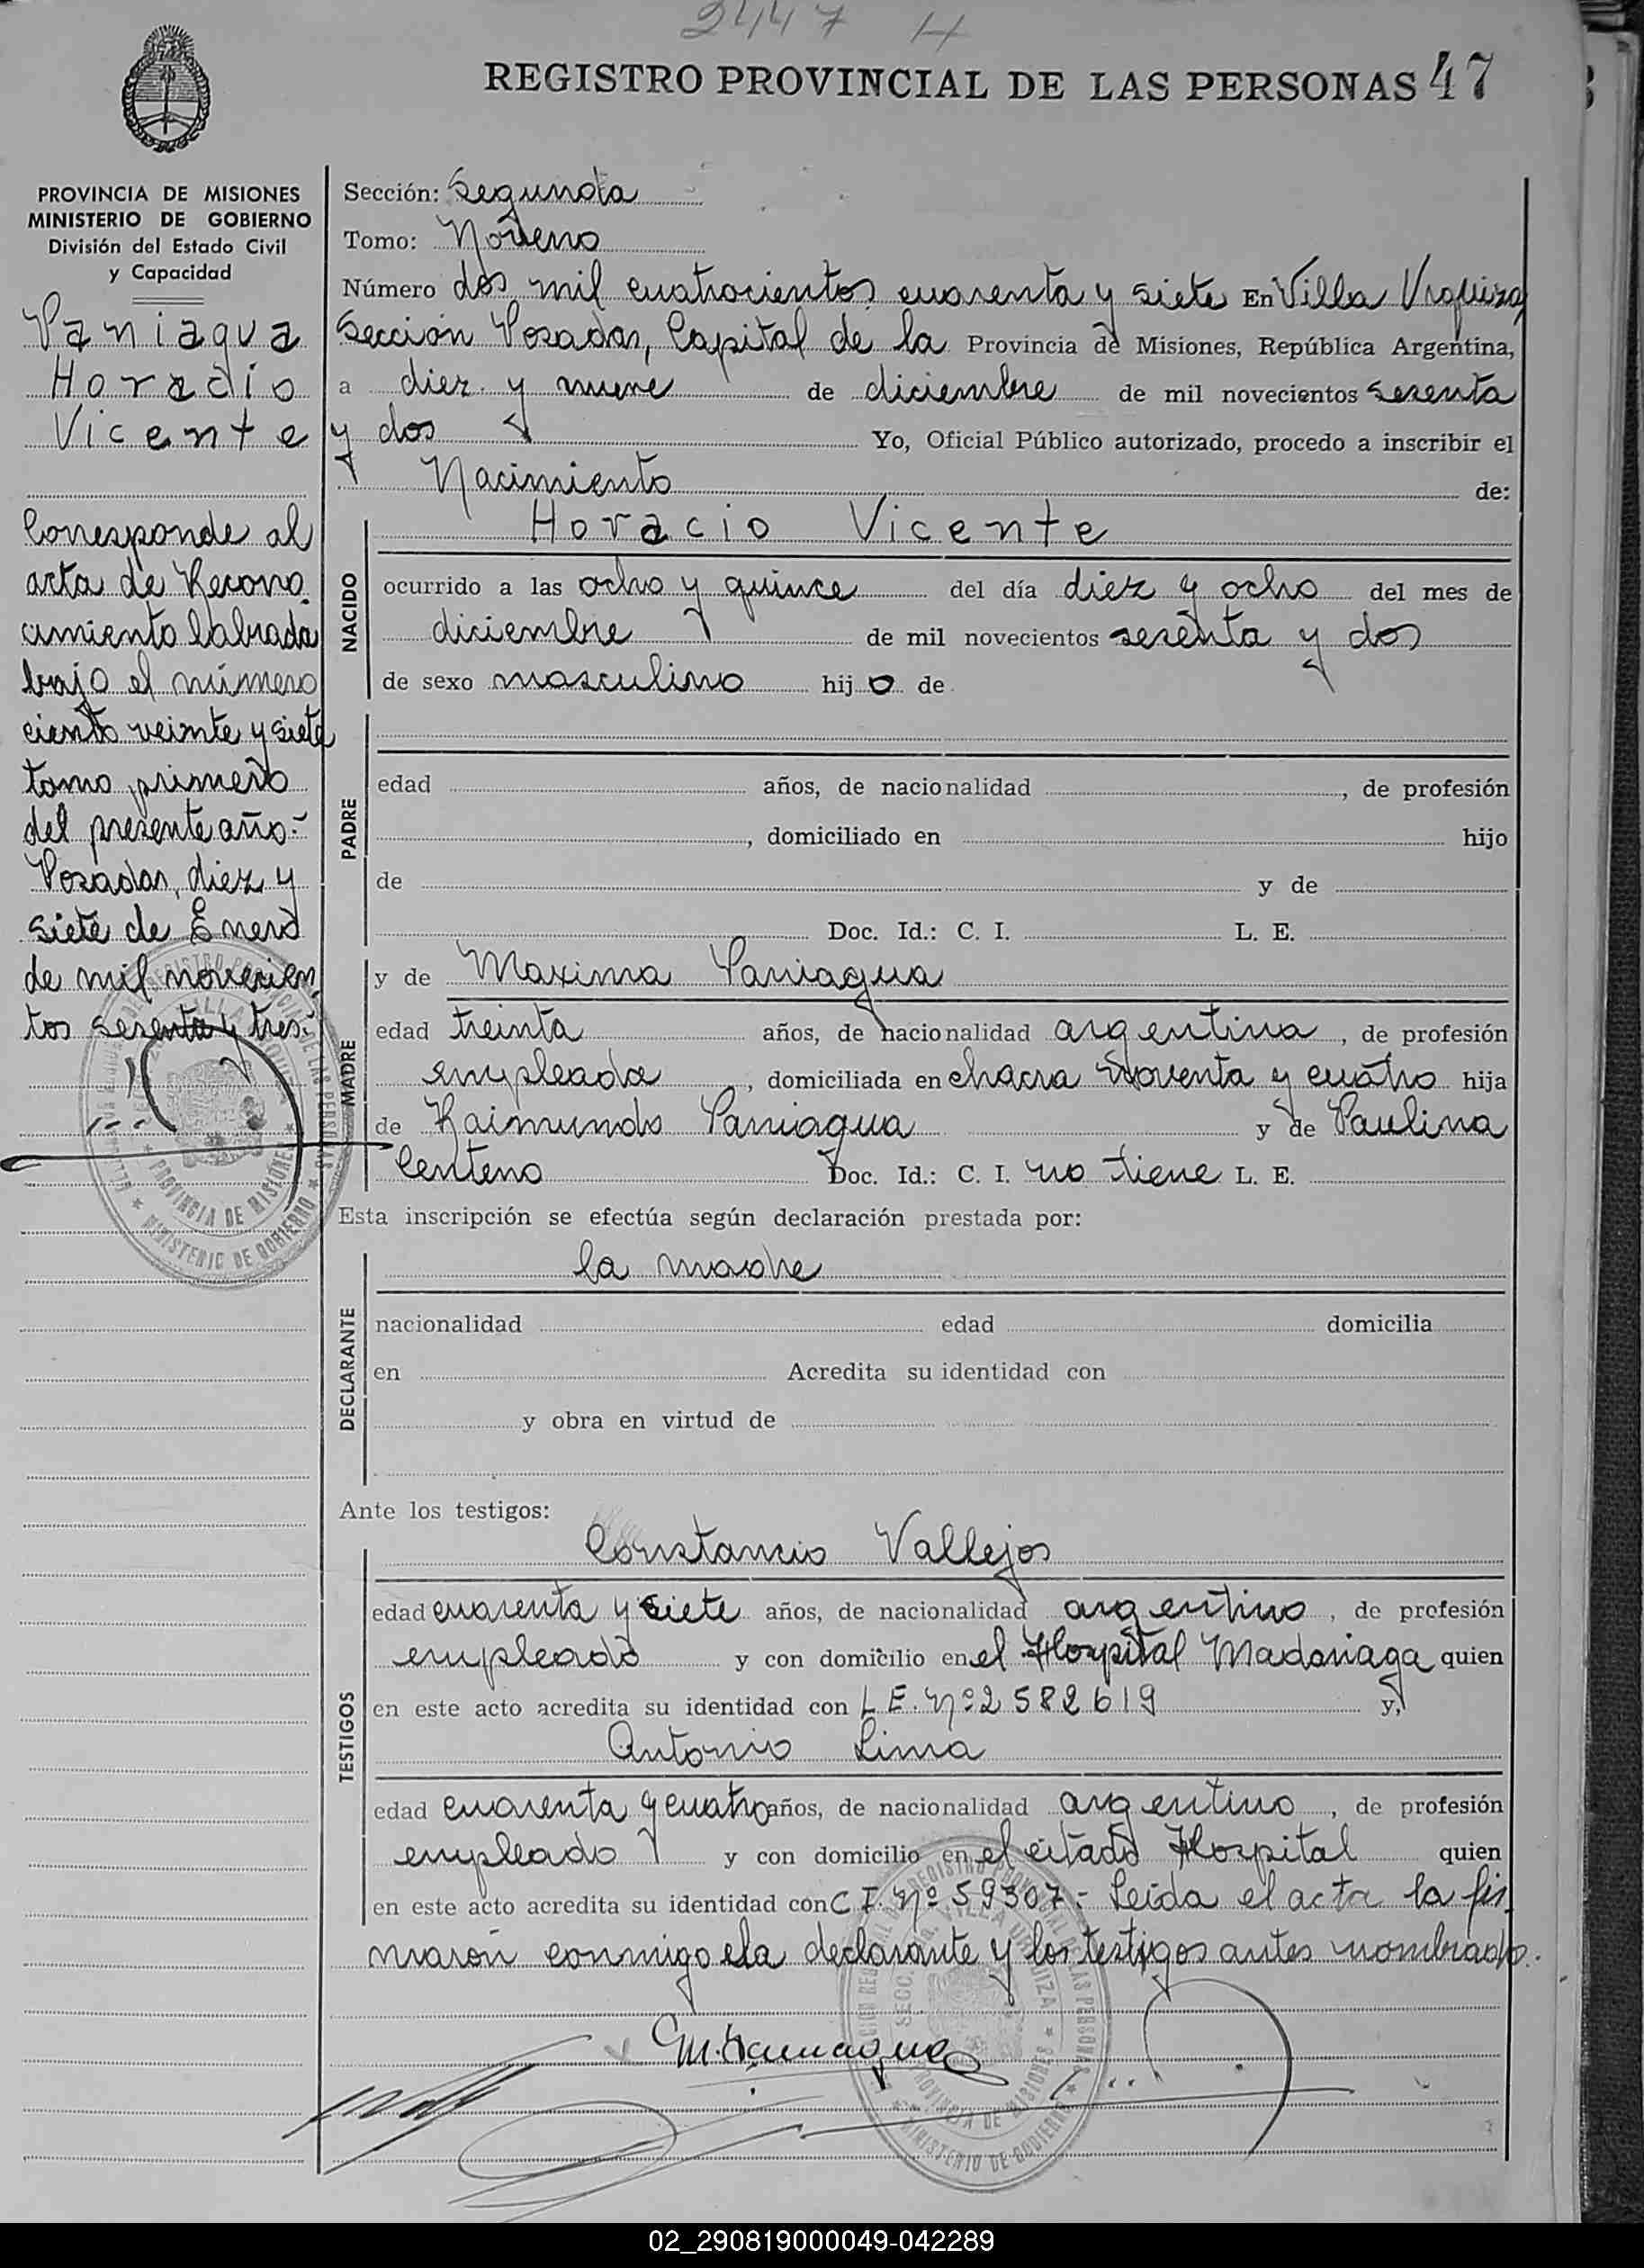 2447 H
REGISTRO PROVINCIAL DE LAS PERSONAS 47
PROVINCIA DE MISIONES
MINISTERIO DE GOBIERNO
División del Estado Civil
y Capacidad
Paniagua
Horacio
Vicente
Corresponde al
acta de Recono
cimiento labrada
bajo el número
ciento veinte y siete
tomo primero
del presente año.-
Posadas, diez y
siete de Enero
de mil novecien
tos sesenta y tres.-
Sección: Segunda
Tomo: Noveno
Número dos mil cuatrocientos cuarenta y siete En Villa Urquiza,
Sección Posadas, Capital de la Provincia de Misiones, República Argentina,
a diez y nueve de diciembre de mil novecientos sesenta
y dos Yo, Oficial Público autorizado, procedo a inscribir el
Nacimiento de:
NACIDO
Horacio Vicente
ocurrido a las ocho y quince del día diez y ocho del mes de
diciembre de mil novecientos sesenta y dos
de sexo masculino hijo de
PADRE
edad años, de nacionalidad , de profesión
, domiciliado en hijo
de y de
Doc. Id.: C. I. L. E.
MADRE
y de Maxima Paniagua
edad treinta años, de nacionalidad argentina, de profesión
empleada, domiciliada en chacra noventa y cuatro hija
de Raimundo Paniagua y de Paulina
Centeno Doc. Id.: C. I. no tiene L. E.
Esta inscripción se efectúa según declaración prestada por:
DECLARANTE
la madre
nacionalidad edad domicilia
en Acredita su identidad con
y obra en virtud de
Ante los testigos:
TESTIGOS
Constancio Vallejos
edad cuarenta y siete años, de nacionalidad argentino, de profesión
empleado y con domicilio en el Hospital Madariaga quien
en este acto acredita su identidad con L E. Nº 2582619 y,
Antonio Lima
edad cuarenta y cuatro años, de nacionalidad argentino, de profesión
empleado y con domicilio en el citado Hospital quien
en este acto acredita su identidad con C I. Nº 59307.- Leída el acta la fir
maron conmigo la declarante y los testigos antes nombrado.
M. Paniagua
02_290819000049-042289